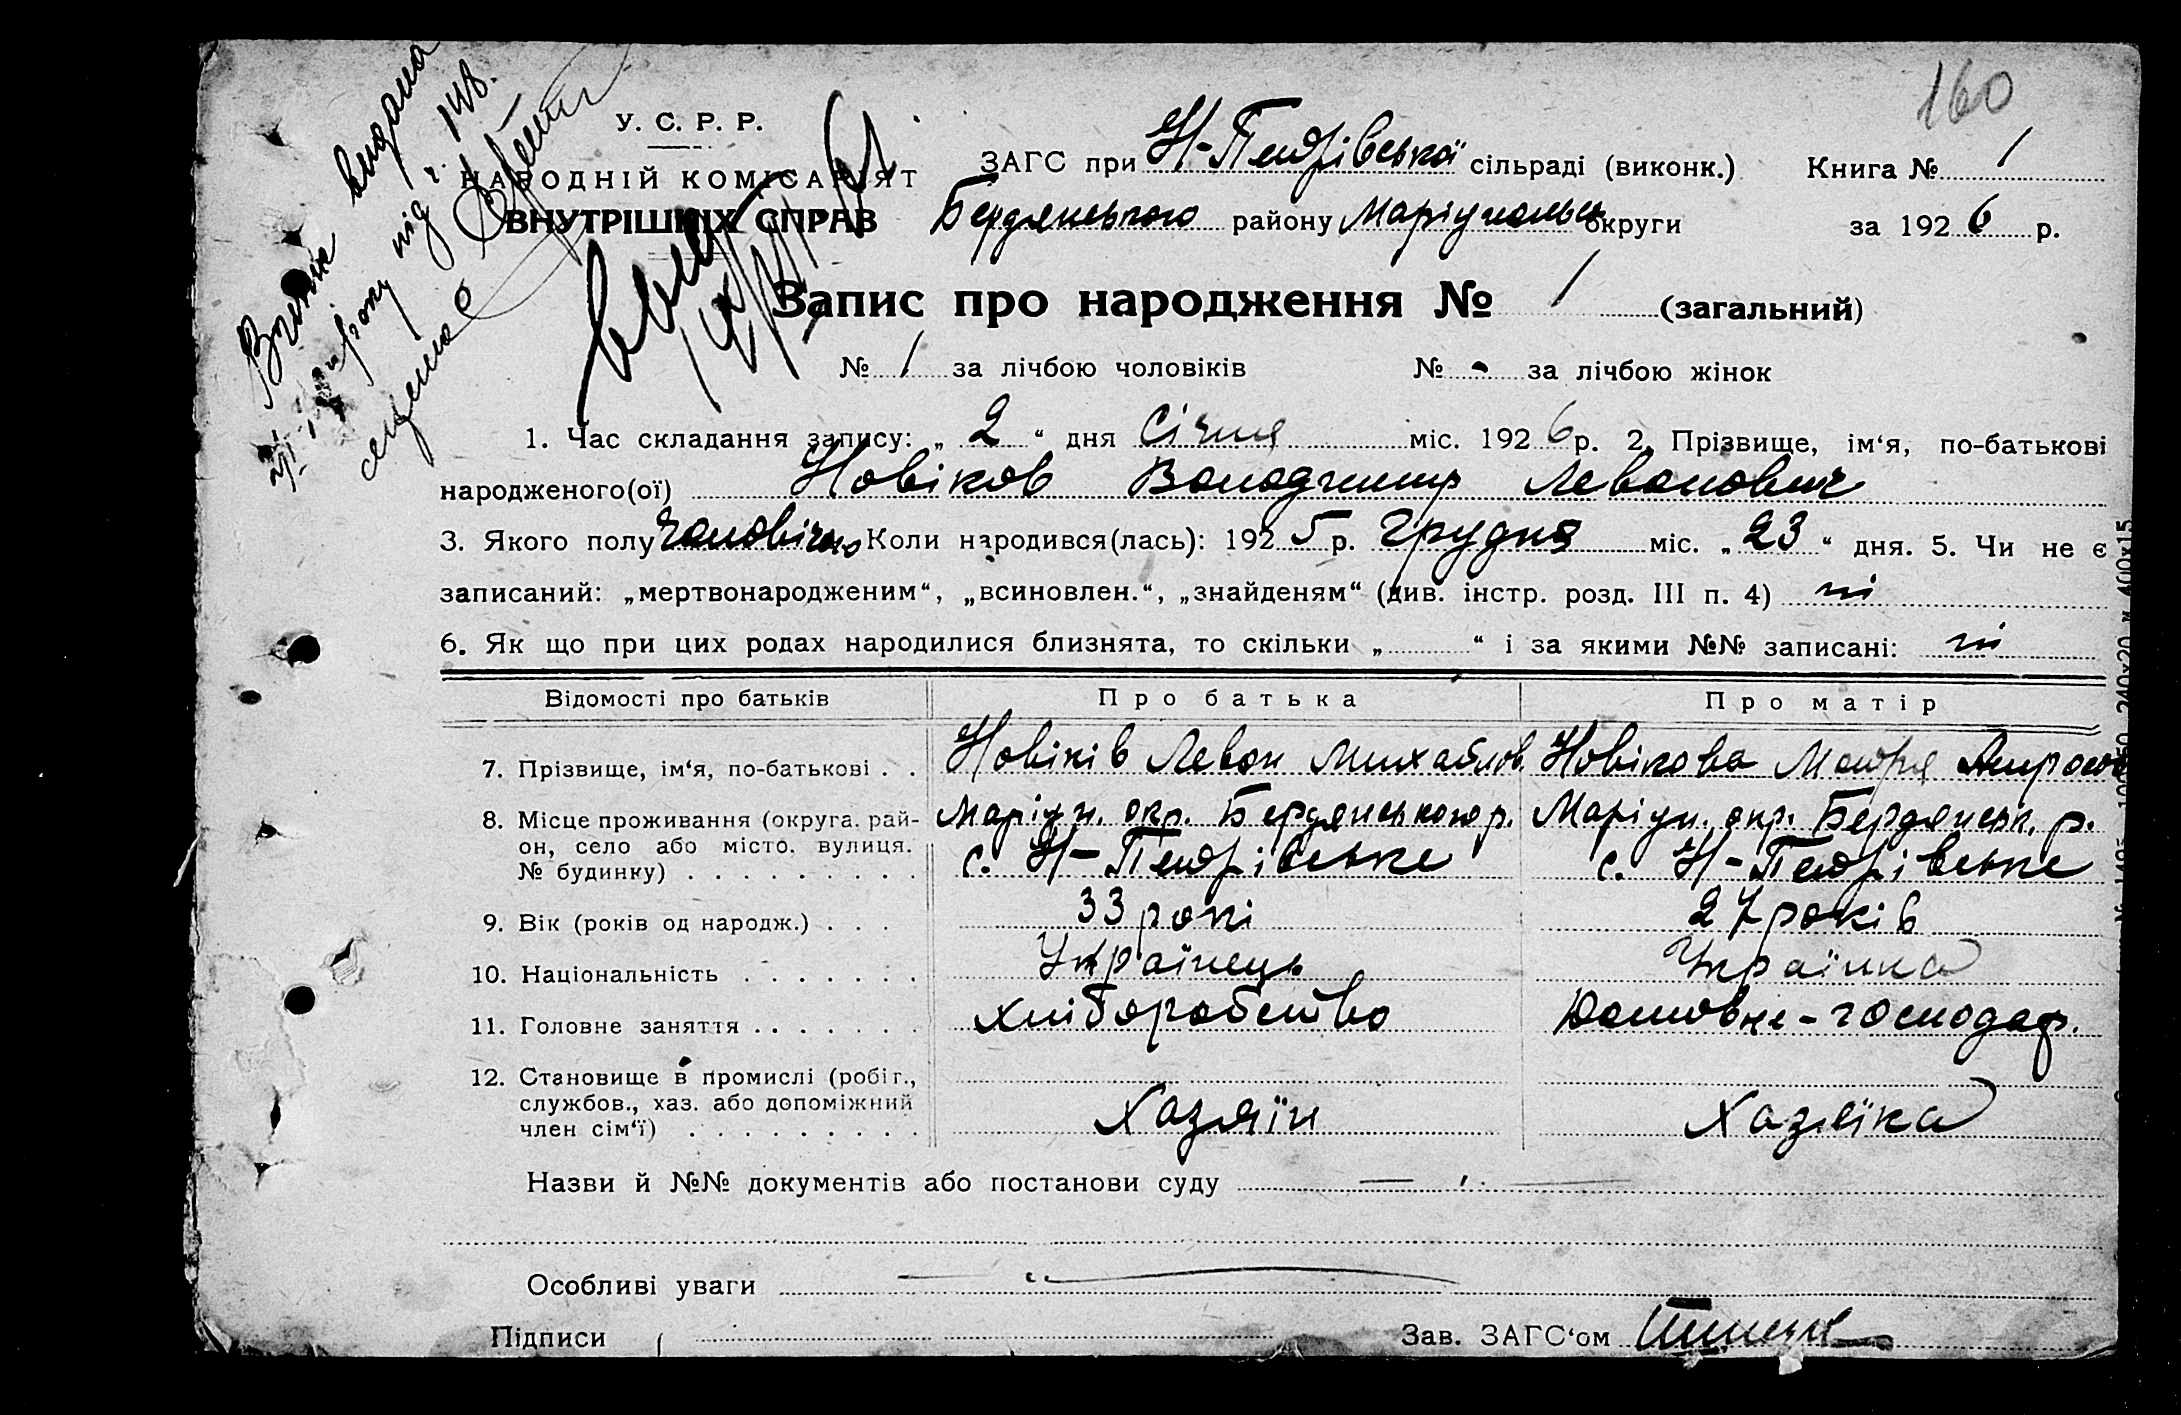 160
Витяг видана
під ч. 148.
У. С. Р. Р.
НАРОДНІЙ КОМІСАРІЯТ
ВНУТРІШНІХ СПРАВ
ЗАГС при Н-Петрівської сільраді (виконк.) Книга № 1
Бердянського району Маріупольськ округи за 1926 р.
Запис про народження № 1 (загальний)
№ 1 за лічбою чоловіків № - за лічбою жінок
1. Час складання запису: „ 2 “ дня Січня міс. 1926 р. 2. Прізвище, ім‘я, по-батькові
народженого(ої) Новіков Володимир Левонович
3. Якого полу чоловічого Коли народився(лась): 1925 р. Грудня міс. „ 23 “ дня. 5. Чи не є
записаний: „мертвонародженим“, „всиновлен.“, „знайденям“ (див. інстр. розд. III п. 4) ні
6. Як що при цих родах народилися близнята, то скільки „ “ і за якими №№ записані: ні
Відомості про батьків Про батька Про матір
7. Прізвище, ім‘я, по-батькові . . Новіків Левон Михайлов. Новікова Мотря
8. Місце проживання (округа. рай- Маріуп. окр. Бердянського р. Маріуп. окр. Бердянськ. р.
он, село або місто. вулиця. с. Н-Петрівське с. Н-Петрівське
№ будинку) . . . . . . . . .
9. Вік (років од народж.) . . . 33 рокі 27 років
10. Національність . . . . . . . Українець Українка
11. Головне заняття . . . . . . . хліборобство Домовне-господар.
12. Становище в промислі (робіт.,
службов., хаз. або допоміжний Хазяїн Хазяїка
член сім‘ї) . . . . . . . . .
Назви й №№ документів або постанови суду
Особливі уваги
Підписи Зав. ЗАГС‘ом